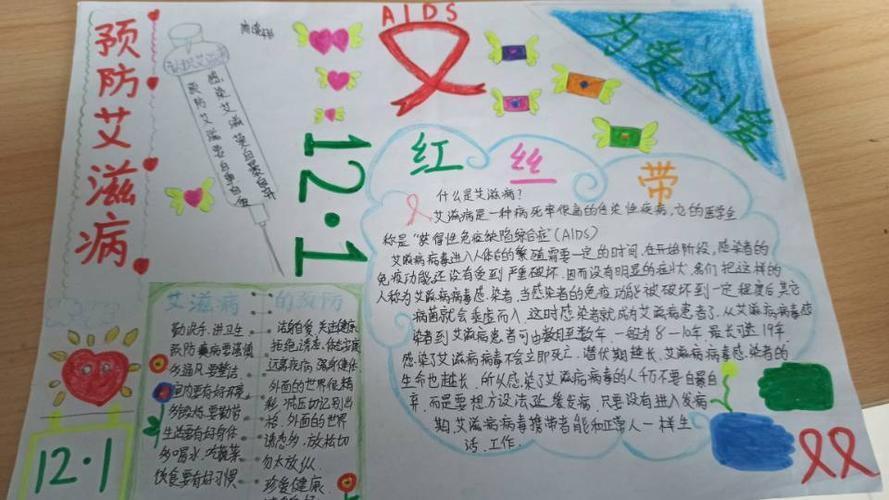 预防艾滋病
认识艾滋病
AIDS
为爱创爱
12·1
红丝带
什么是艾滋病?
艾滋病是一种病死率很高的传染性疾病,它的医学全
称是“获得性免疫缺陷综合症”(AIDS)
艾滋病病毒进入人体的繁殖需要一定的时间.在开始阶段,感染者的
免疫功能还没有受到严重破坏.因而没有明显的症状.我们把这样的
人称为艾滋病病毒感染者.当感染者的免疫功能被破坏到一定程度后其它
病菌就会乘虚而入.这时感染者就成为艾滋病患者了.从艾滋病病毒感
染者到艾滋病患者可由数月至数年.一般为8-10年.最长可达19年.
感染了艾滋病病毒不会立即死亡.潜伏期越长.艾滋病病毒感染者的
生命也越长.所以感染了艾滋病病毒的人千万不要自暴自
弃.而是要想方设法延缓发病.只要没有进入发病
期.艾滋病病毒携带者能和正常人一样生
活、工作.
艾滋病的预防
勤洗手.讲卫生
预防
要整洁
要勤
生活要有好身体
多喝水.吃蔬菜
饮食要有好习惯
洁身自爱.关注健康
拒绝诱惑.
远离疾病.强身健体
外面的世界很精
彩.
外面的世界
诱惑多.放松切
勿太放纵.
珍爱健康.
12·1